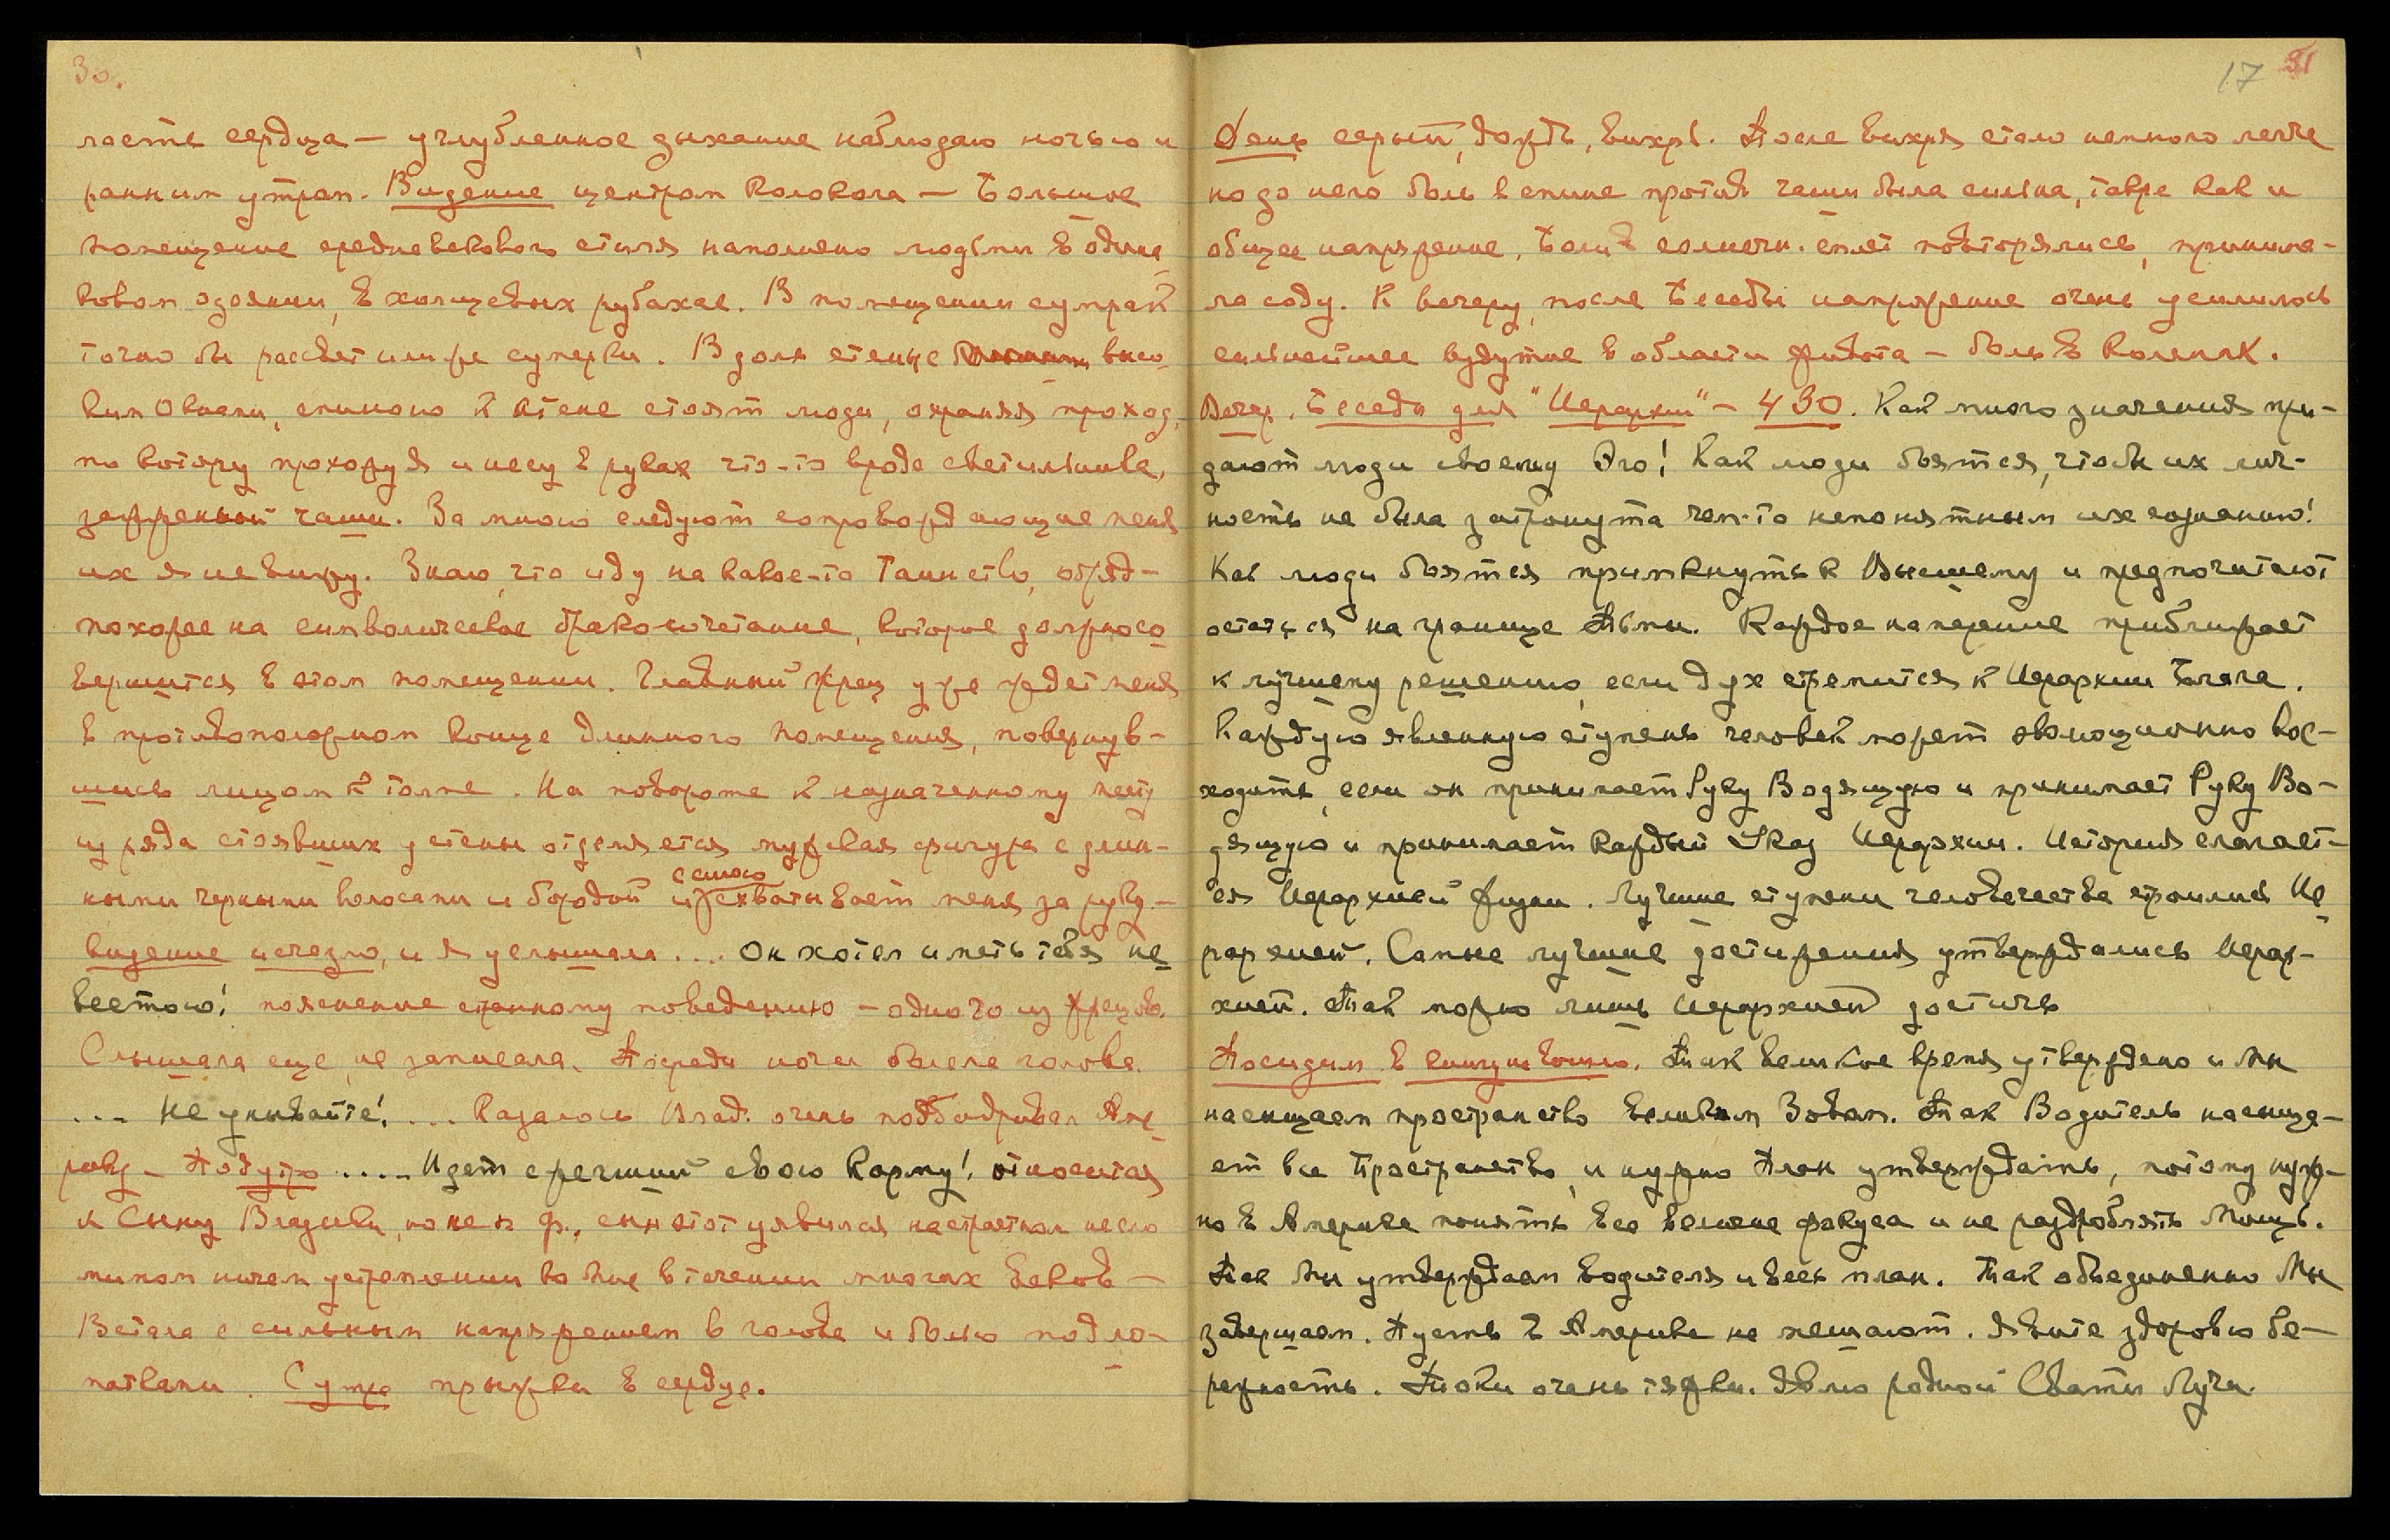 30.
ласть сердца — углубленное дыхание наблюдаю ночью и
ранним утром. Видение центром Колокола — Большое
помещение средневекового стиля наполнено людьми в одина-
ковом одеянии, в холщевых рубахах. В помещении сумрак
точно бы рассвет или же сумерки. Вдоль стены с высо-
кими окнами, спиною к стене стоят люди, охраняя проход,
по котору прохожу я и несу в руках что-то вроде светильника,
зажженной чаши. За мною следуют сопровождающие меня
их я не вижу. Знаю, что иду на какое-то Таинство, обряд —
похожее на символическое бракосочетание, которое должно со
вершится в этом помещении. Главный жрец уже ждет меня
в противоположном конце длинного помещения, повернув-
шись лицом к толпе. На повороте к назначенному месту
из ряда стоявших у стены отделяется мужская фигура с длин-
ными черными волосами и бородой и с силою схватывает меня за руку —
видение исчезло, и я услышала .... Он хотел иметь тебя не
вестою! пояснение странному поведению — одного из жрецов.
Слышала еще, не записала. Посреди ночи болела голова.
... Не унывайте! ... Казалось Влад. очень подбадривал Аме
рику — Под утро .... Идет сужденный свою Карму! относится
к Сыну Владыки, но не к ф., сын этот уявился на страстном несло
мимом ничем устремлении ко Мне в течении многих веков —
Встала с сильным напряжением в голове и болью под ло-
патками. С утра прыжки в сердце.
17 31
День серый, дождь, вихрь. После вихря стало немного легче
но до него боль в спине против чаши была сильна, также как и
общее напряжение, боли в солнечн. сплет повторялись, принима-
ла соду. К вечеру, после Беседы напряжение очень усилилось
сильнейшее вздутие в области живота — боль в коленях.
Вечер. Беседа для "Иерархии" — 430. Как много значения при-
дают люди своему Эго! Как люди боятся, чтобы их лич-
ность не была затронута чем-то непонятным их сознанию!
Как люди боятся примкнуть к Высшему и предпочитают
остаться на границе Тьмы. Каждое намерение приближает
к лучшему решению, если дух стремится к Иерархии Блага.
Каждую явленную ступень человек может эволюционно вос-
ходить, если он принимает Руку Водящую и принимает Руку Во-
дящую и принимает каждый Указ Иерархии. История слагает-
ся Иерархией Жизни. Лучшие ступени человечества строились Ие
рархией. Самые лучшие достижения утверждались Иерар-
хией. Так можно лишь Иерархией достичь
Посидим в тишине. Так великое время утверждено и Мы
насыщаем пространство великим Зовом. Так Водитель насыща-
ет все Пространство, и нужно План утверждать, потому нуж-
но в Америке понять все веление фокуса и не раздроблять Мощь.
Так Мы утверждаем Водителя и весь план. Так объединенно Мы
завершаем. Пусть в Америке не мешают. Явите здоровью бе-
режность. Токи очень тяжки. Явлю родной Свати Лучи.